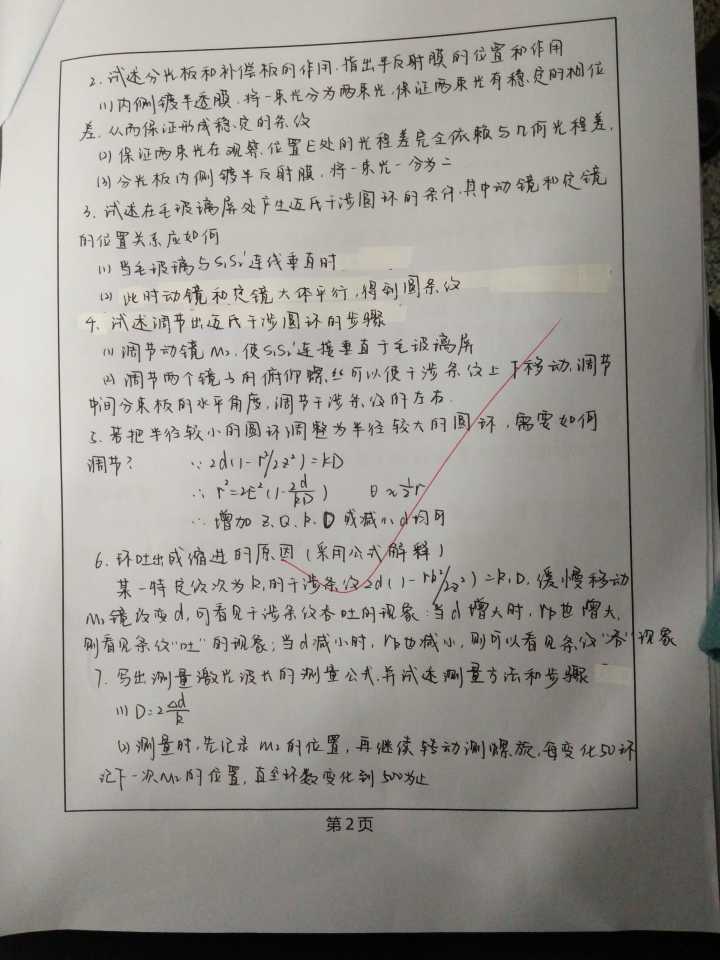 2. 试述分光板和补偿板的作用.指出半反射膜的位置和作用
(1)内侧镀半透膜.将一束光分为两束光.保证两束光有稳定的相位
差.从而保证形成稳定的条纹
(2)保证两束光在观察位置E处的光程差完全依赖与几何光程差.
(3)分光板内侧镀半反射膜.将一束光一分为二
3. 试述在毛玻璃屏处产生迈氏干涉圆环的条件.其中动镜和定镜
的位置关系应如何
(1) 当毛玻璃与S₁S₂'连线垂直时
(2) 此时动镜和定镜大体平行,得到圆条纹
4. 试述调节出迈氏干涉圆环的步骤
(1) 调节动镜M₂.使S₁S₂'连接垂直于毛玻璃屏
(2) 调节两个镜上的俯仰螺丝可以使干涉条纹上下移动,调节
中间分束板的水平角度,调节干涉条纹的左右.
5. 若把半径较小的圆环调整为半径较大的圆环,需要如何
调节? ∵ 2d(1-r²/2z²)=kD
∴ r²=2z²(1-2d/kD) θ≈½r
∴ 增加 Z.Q.k.D 或减小d均可
6. 环吐出或缩进的原因(采用公式解释)
某一特定级次为k,的干涉条纹2d(1-rk²/2z²)=k.D.缓慢移动
M₁镜改变d,可看见干涉条纹吞吐的现象:当d增大时,rk也增大,
则看见条纹"吐"的现象;当d减小时,rk也减小,则可以看见条纹"吞"现象
7. 写出测量激光波长的测量公式.并试述测量方法和步骤
(1) D=2Δd/k
(2)测量时,先记录M₂的位置,再继续转动测螺旋,每变化50环
记下一次M₂的位置,直至环数变化到500为止
第2页